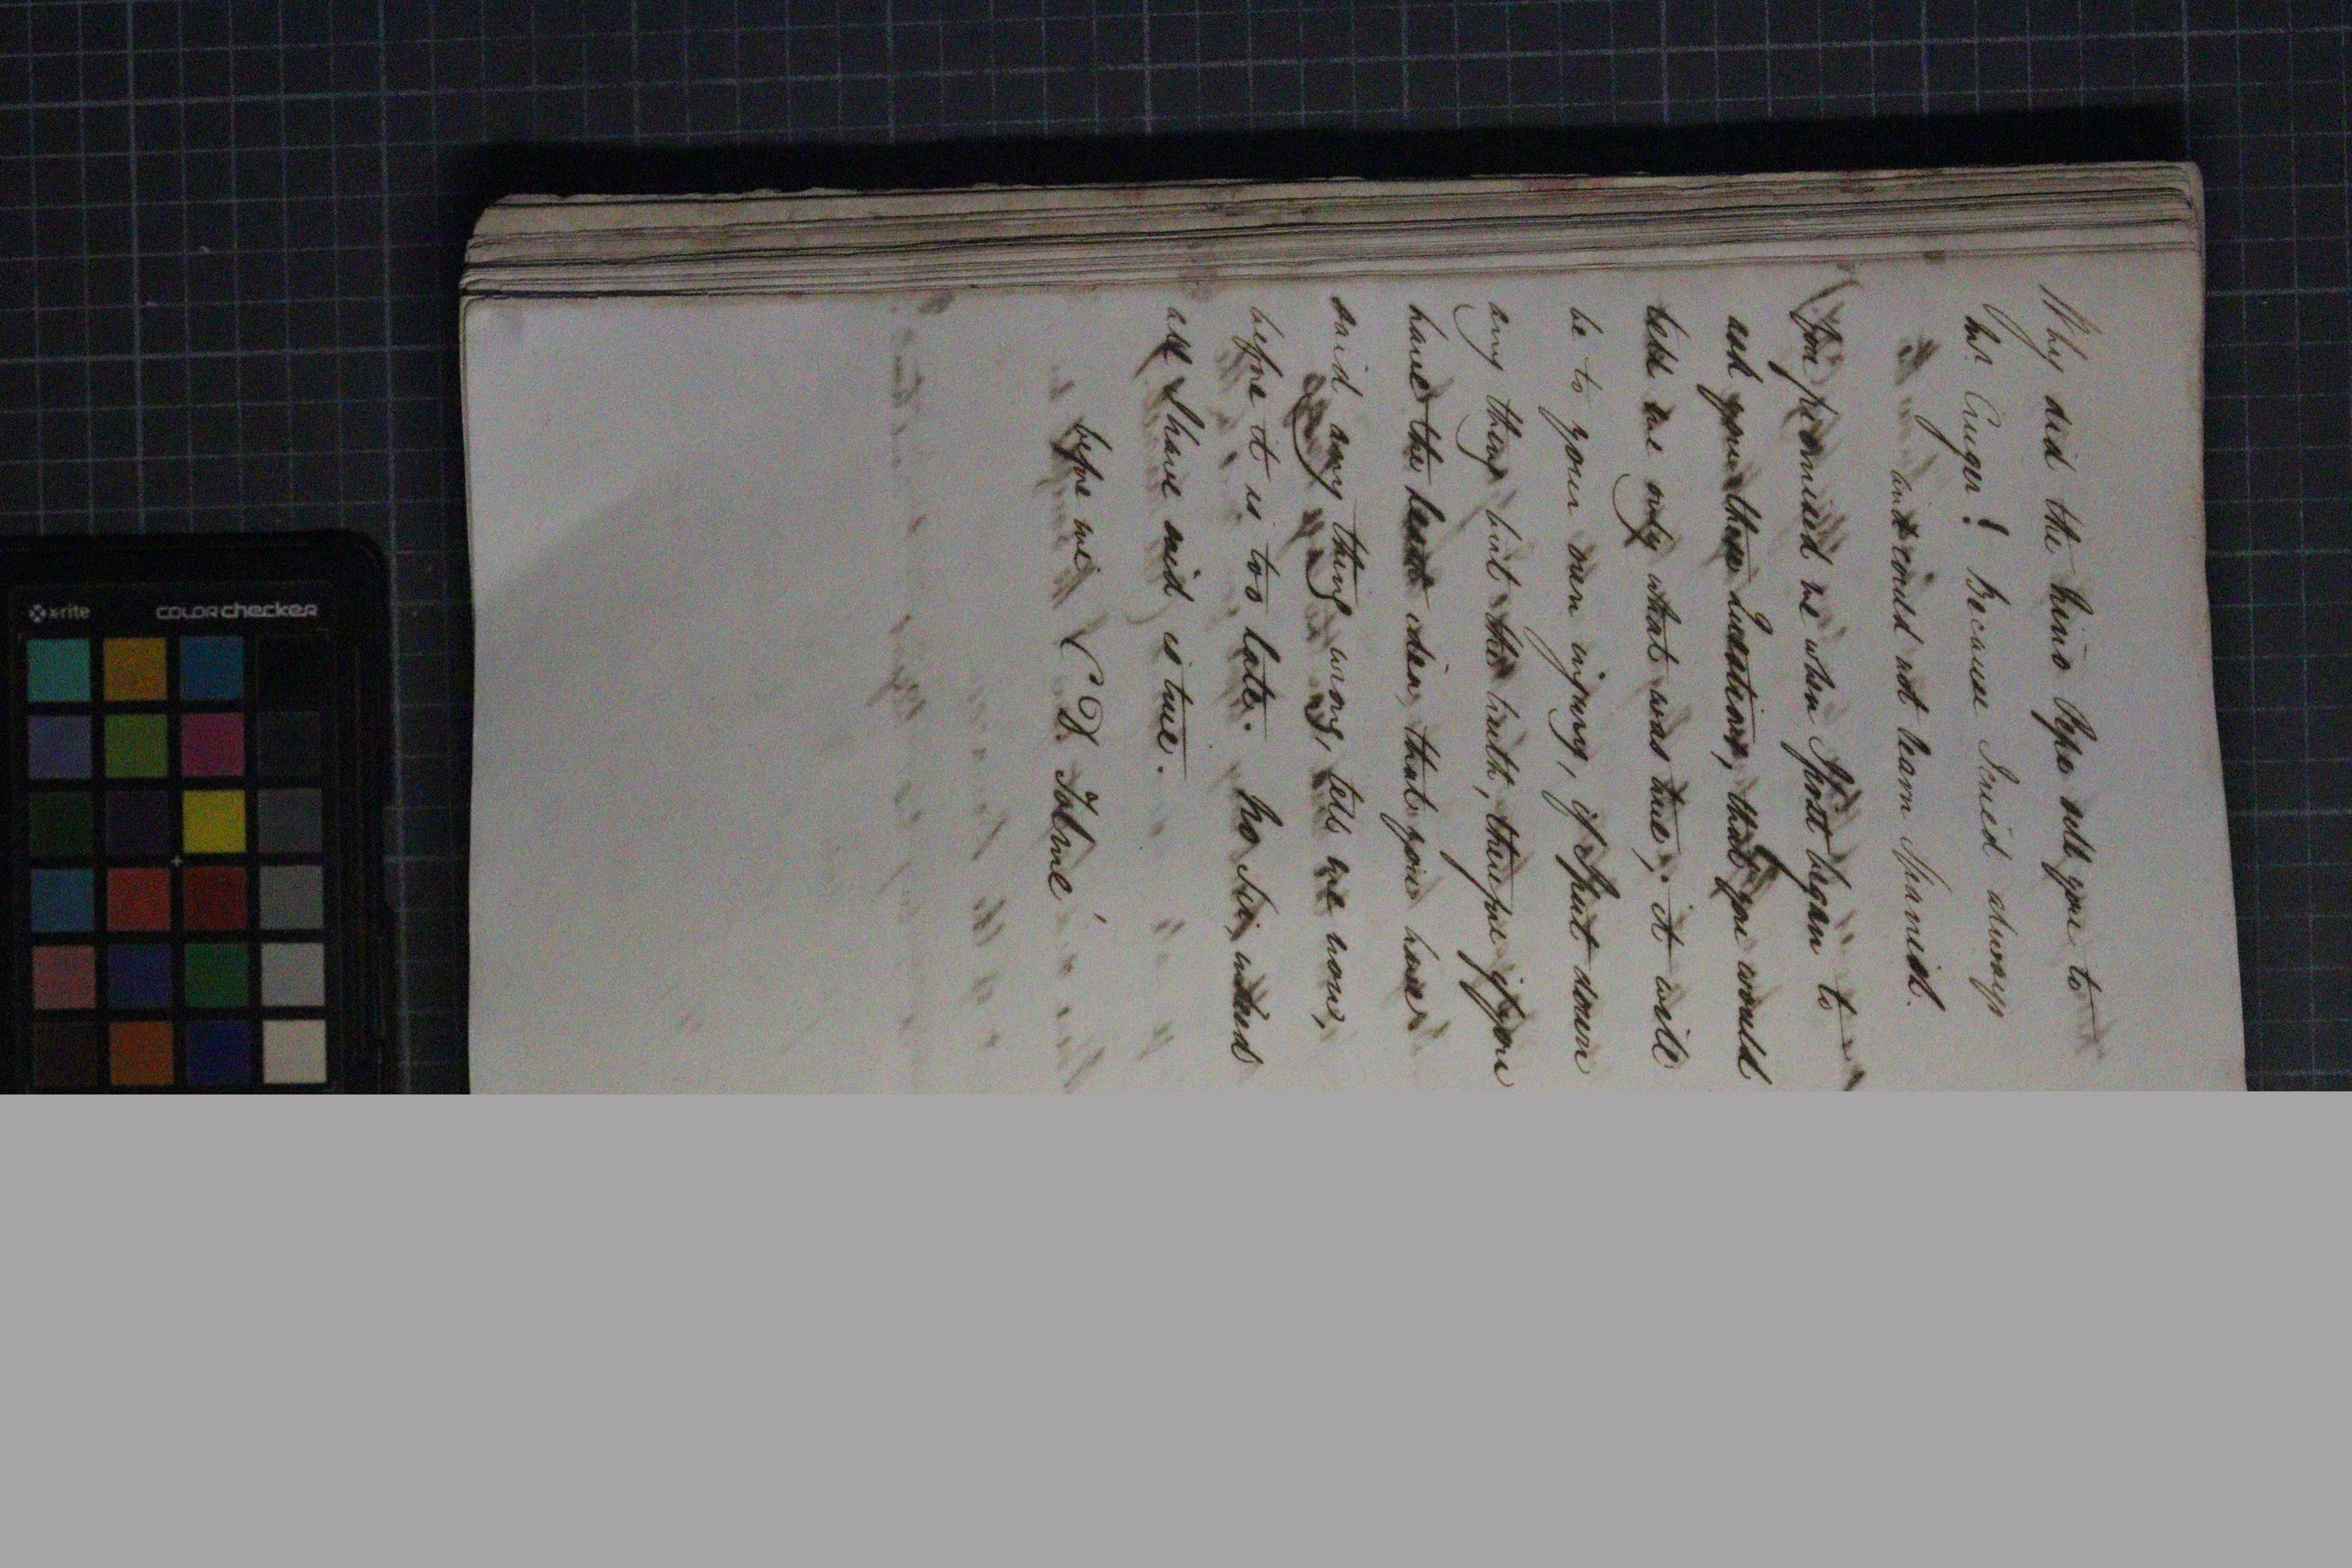 Why did the Señor Pepe sell you to
Mr. Cruger? Because I cried always
and could not learn Spanish.
You promised me when I first began to
ask you these Questions, that you would
tell me only what was true, it will
be to your own injury, if I put down
any thing but the truth, therefore if you
have the least idea, that you have
said any thing wrong, tell me now,
before it is too late. No Sir, indeed
all I have said is true.
before me. (D. Tolmé
x-rite colorchecker